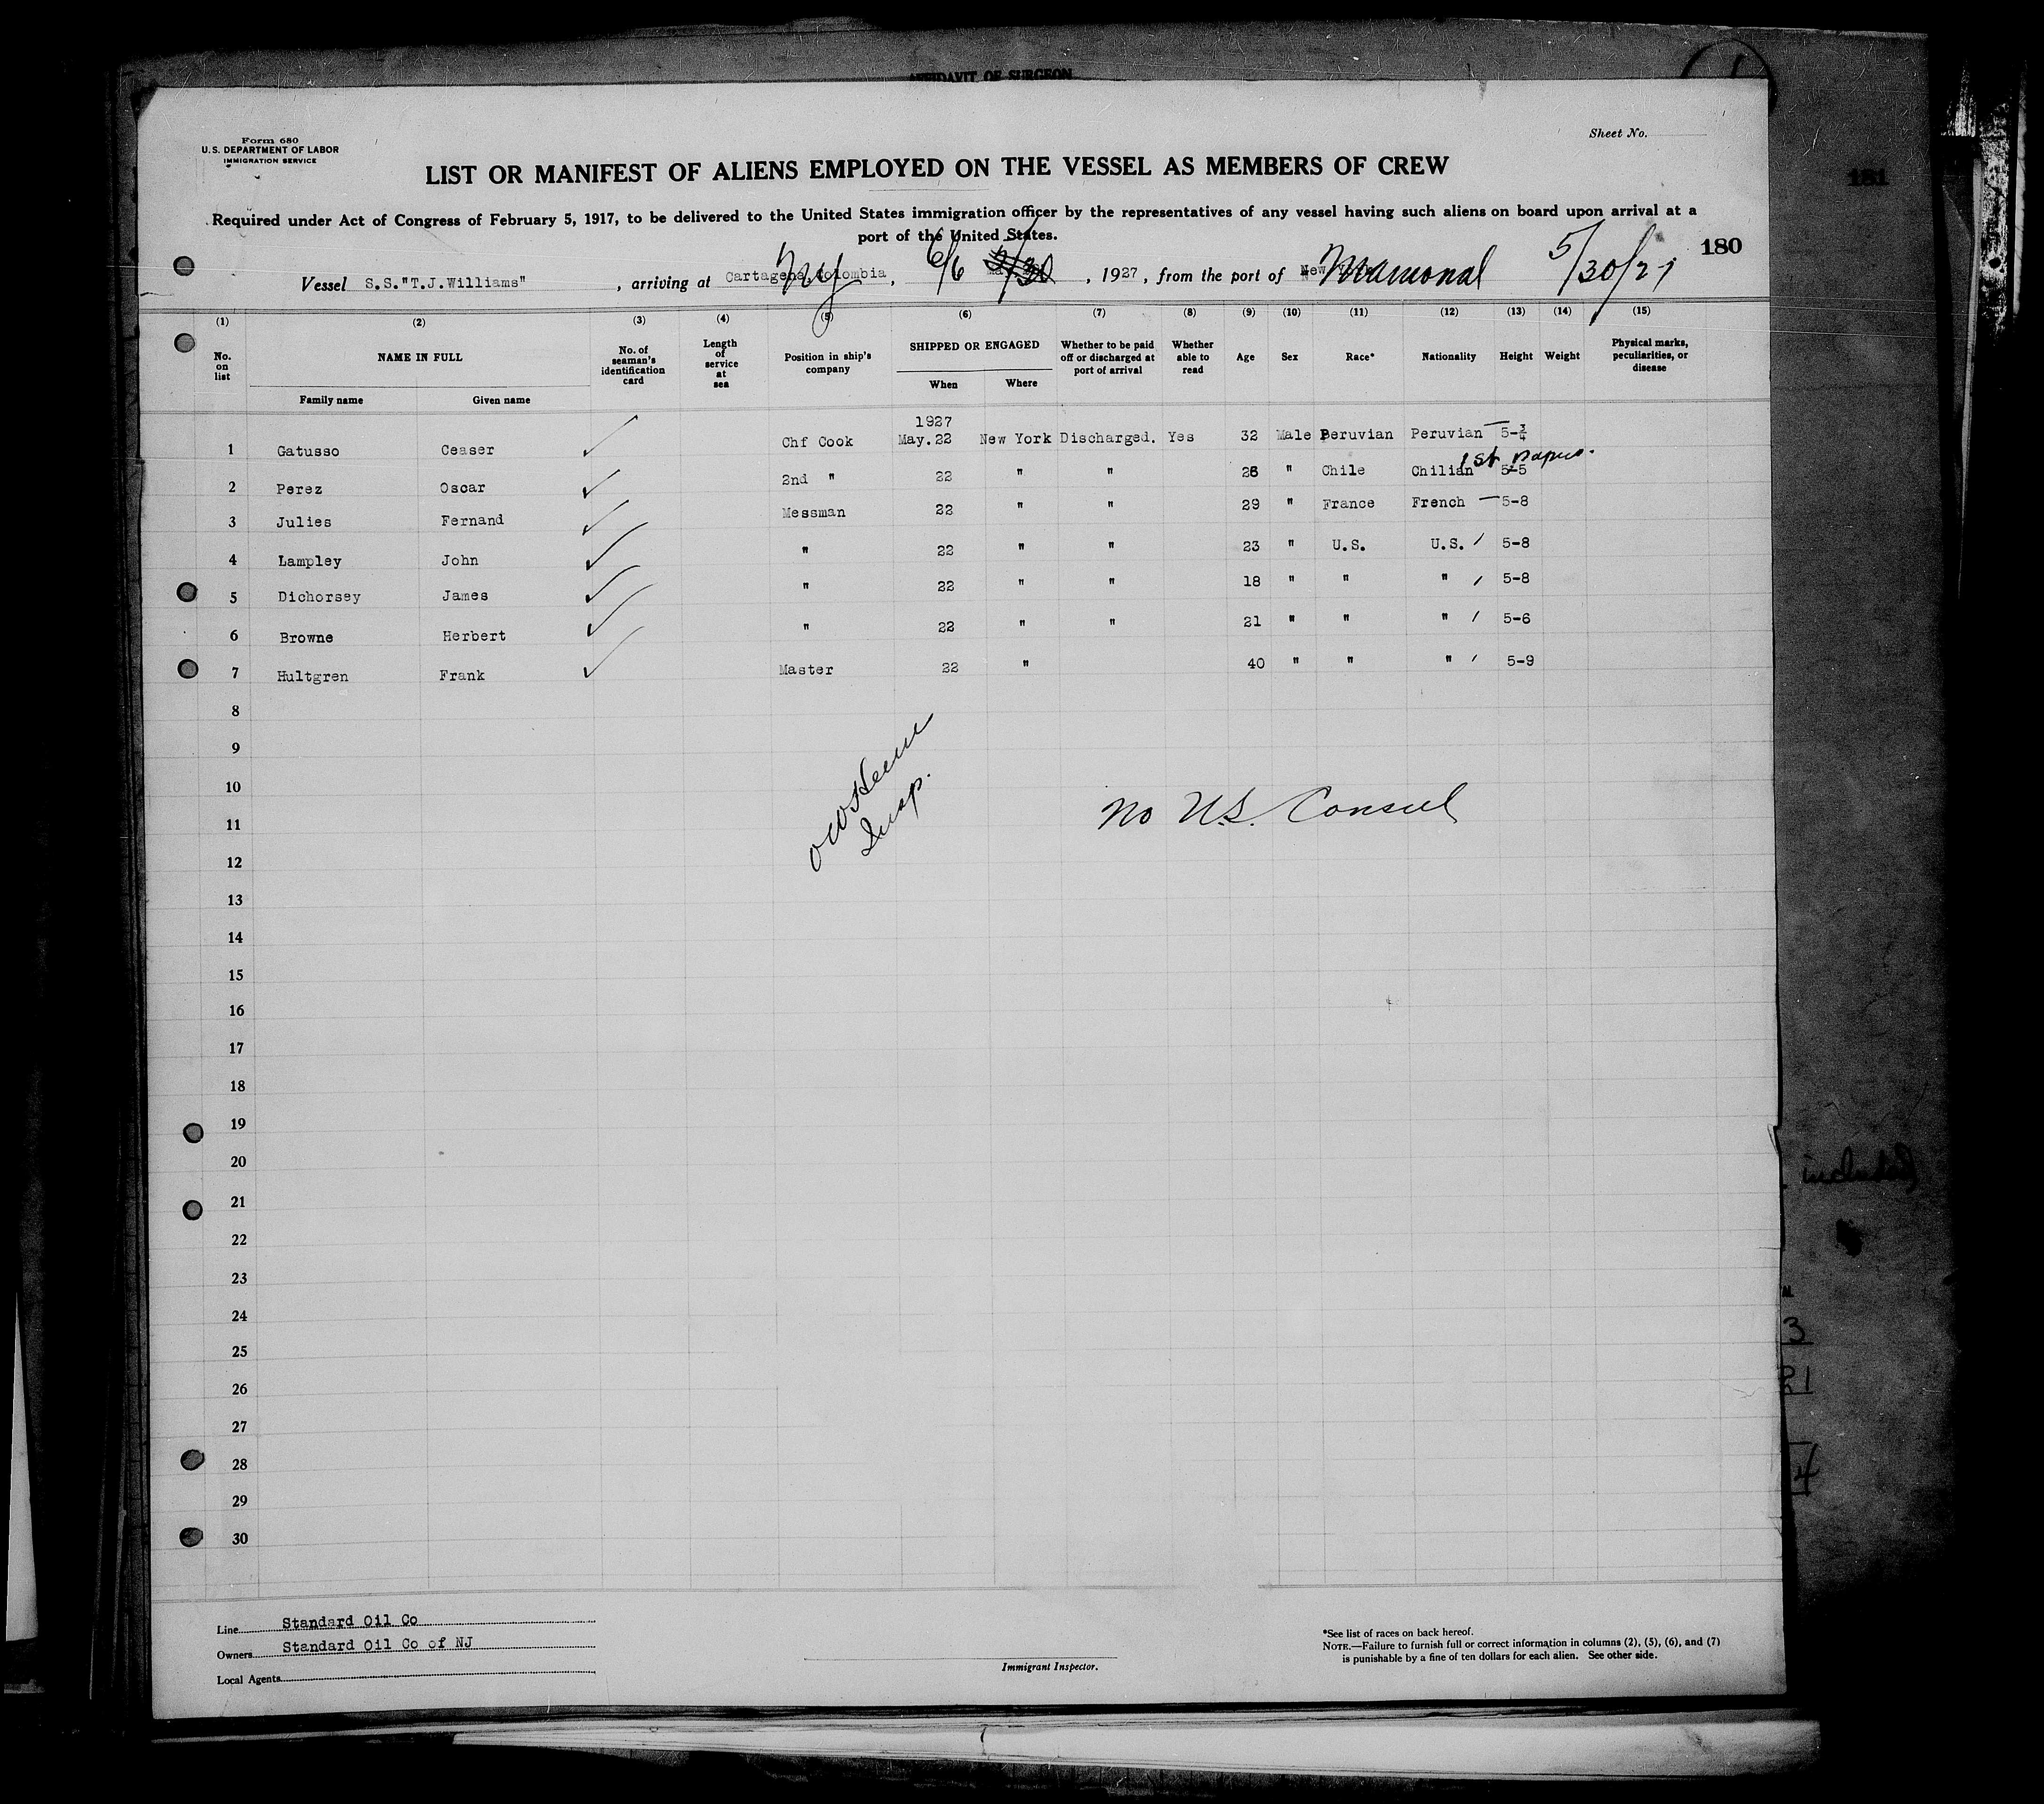 AFFIDAVIT OF SURGEON
Form 680
U.S. DEPARTMENT OF LABOR
IMMIGRATION SERVICE
Sheet No.
LIST OR MANIFEST OF ALIENS EMPLOYED ON THE VESSEL AS MEMBERS OF CREW
181
Required under Act of Congress of February 5, 1917, to be delivered to the United States immigration officer by the representatives of any vessel having such aliens on board upon arrival at a
port of the United States.
180
Vessel S.S."T.J.Williams" , arriving at Cartagena, Colombia NY , 6/6 5/30 , 1927 , from the port of New Mamonal 5/30/27
(1) (2) (3) (4) (5) (6) (7) (8) (9) (10) (11) (12) (13) (14) (15)
No. on list NAME IN FULL Family name Given name No. of seaman's identification card Length of service at sea Position in ship's company SHIPPED OR ENGAGED When Where Whether to be paid off or discharged at port of arrival Whether able to read Age Sex Race* Nationality Height Weight Physical marks, peculiarities, or disease
1927
1 Gatusso Ceaser ✓ Chf Cook May.22 New York Discharged. Yes 32 Male Peruvian Peruvian — 5-¾
1st papers.
2 Perez Oscar ✓ 2nd " 22 " " 28 " Chile Chilian 5-5
3 Julies Fernand ✓ Messman 22 " " 29 " France French — 5-8
4 Lampley John ✓ " 22 " " 23 " U.S. U.S. / 5-8
5 Dichorsey James ✓ " 22 " " 18 " " " / 5-8
6 Browne Herbert ✓ " 22 " " 21 " " " / 5-6
7 Hultgren Frank ✓ Master 22 " 40 " " " / 5-9
8
9
10
11
12
Insp.
No U.S. Consul
13
14
15
16
17
18
19
20
21
22
23
24
25
26
27
28
29
30
included
3
21
4
Line Standard Oil Co
Owners Standard Oil Co of NJ
Local Agents
Immigrant Inspector.
*See list of races on back hereof.
NOTE.—Failure to furnish full or correct information in columns (2), (5), (6), and (7)
is punishable by a fine of ten dollars for each alien. See other side.